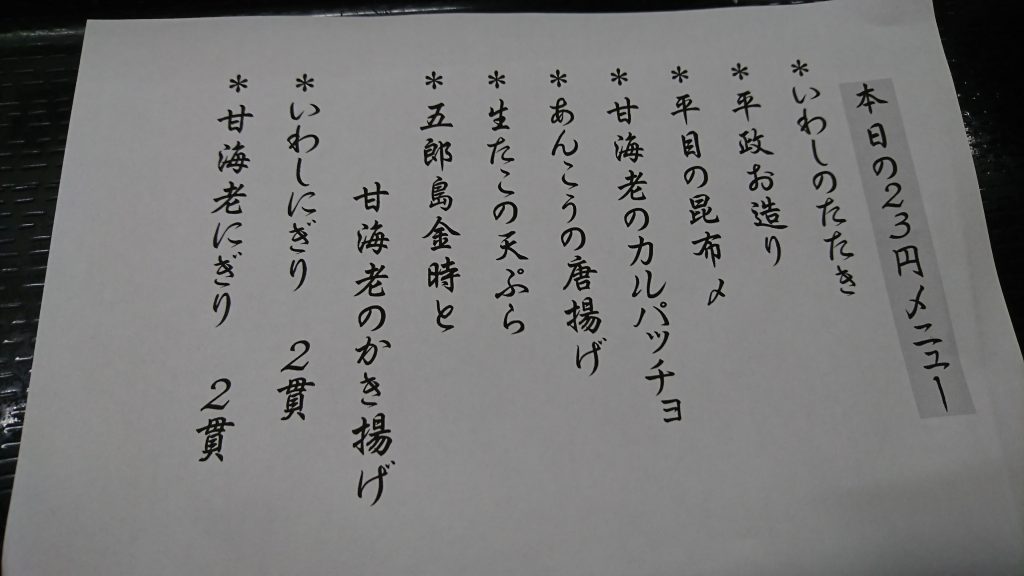 本日の23円メニュー
＊いわしのたたき
＊平政お造り
＊平目の昆布〆
＊甘海老のカルパッチョ
＊あんこうの唐揚げ
＊生たこの天ぷら
＊五郎島金時と
甘海老のかき揚げ
＊いわしにぎり　2貫
＊甘海老にぎり　2貫